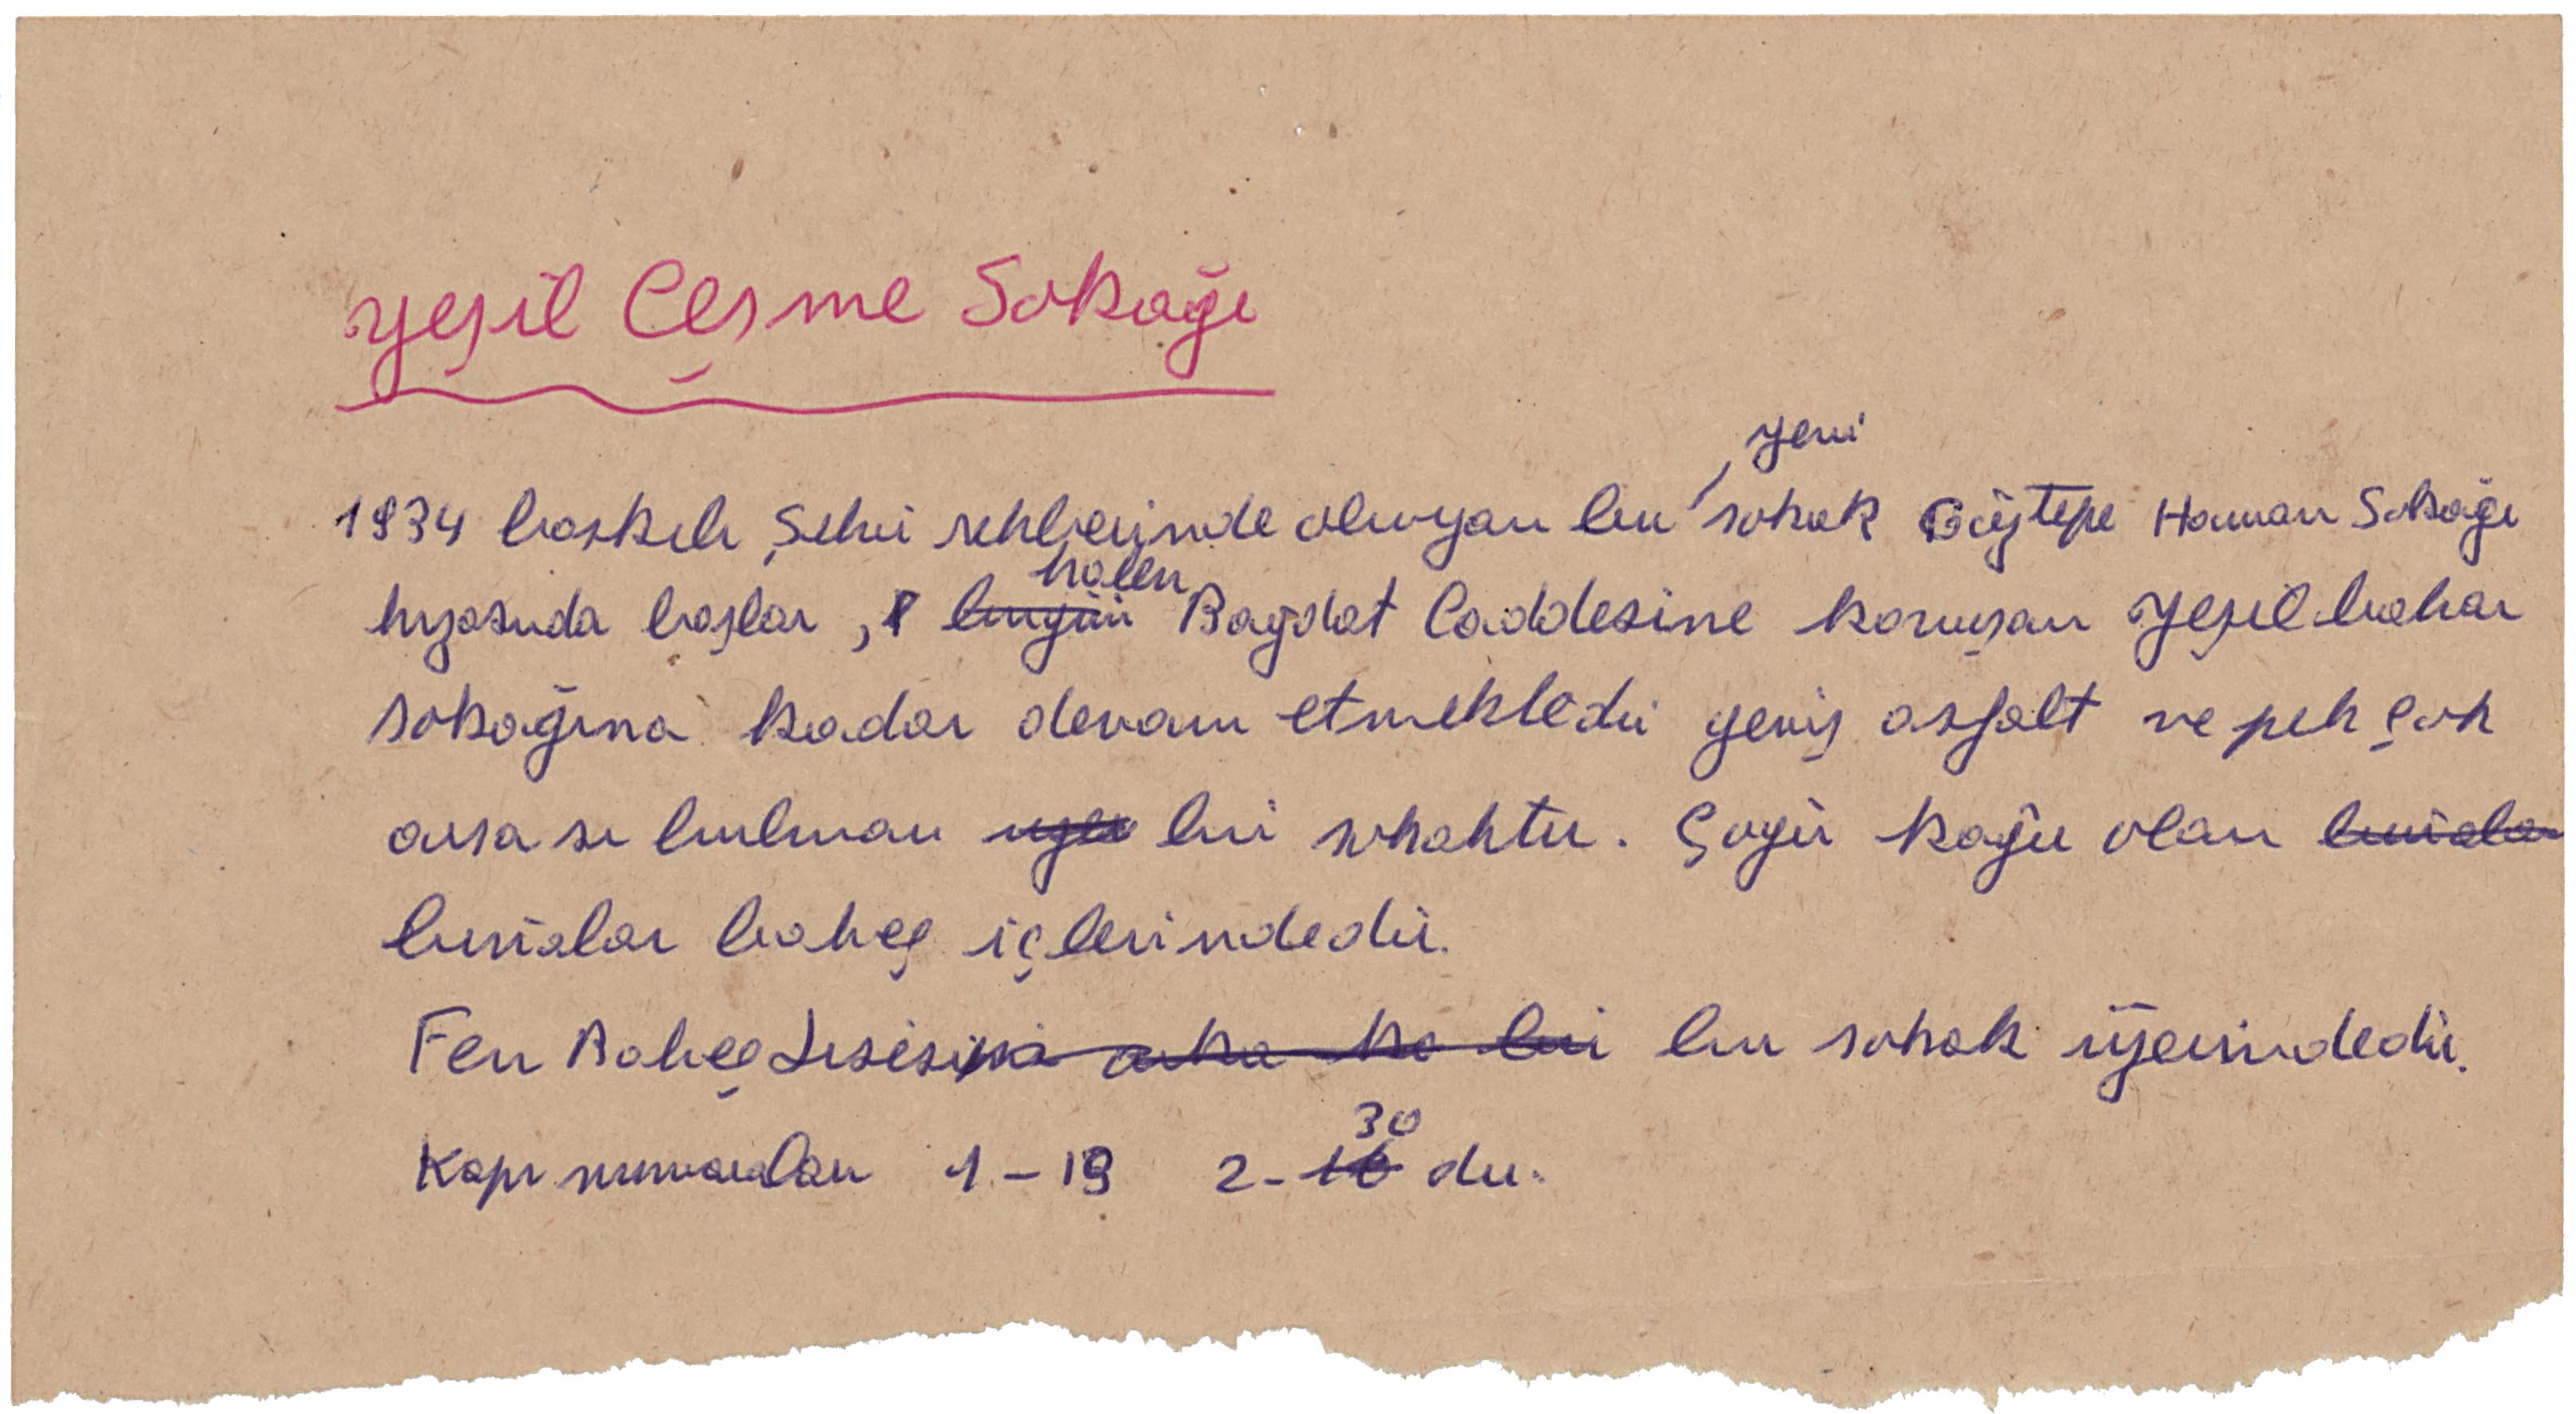 Yeşil Çeşme Sokağı
yeni
1934 baskılı Şehir rehberinde olmıyan bu sokak Göztepe Hamam Sokağı
halen
hizasında başlar, bugün Bağdat Caddesine kavuşan Yeşilbahar
sokağına kadar devam etmektedir geniş asfalt ve pek çok
arsası bulunan bir sokaktır. Çoğu kagir olan binalar
binalar bahçe içlerindedir.
Fen Bahçe Lisesi bu sokak üzerindedir.
30
Kapı numaraları 1-19 2-16 dır.